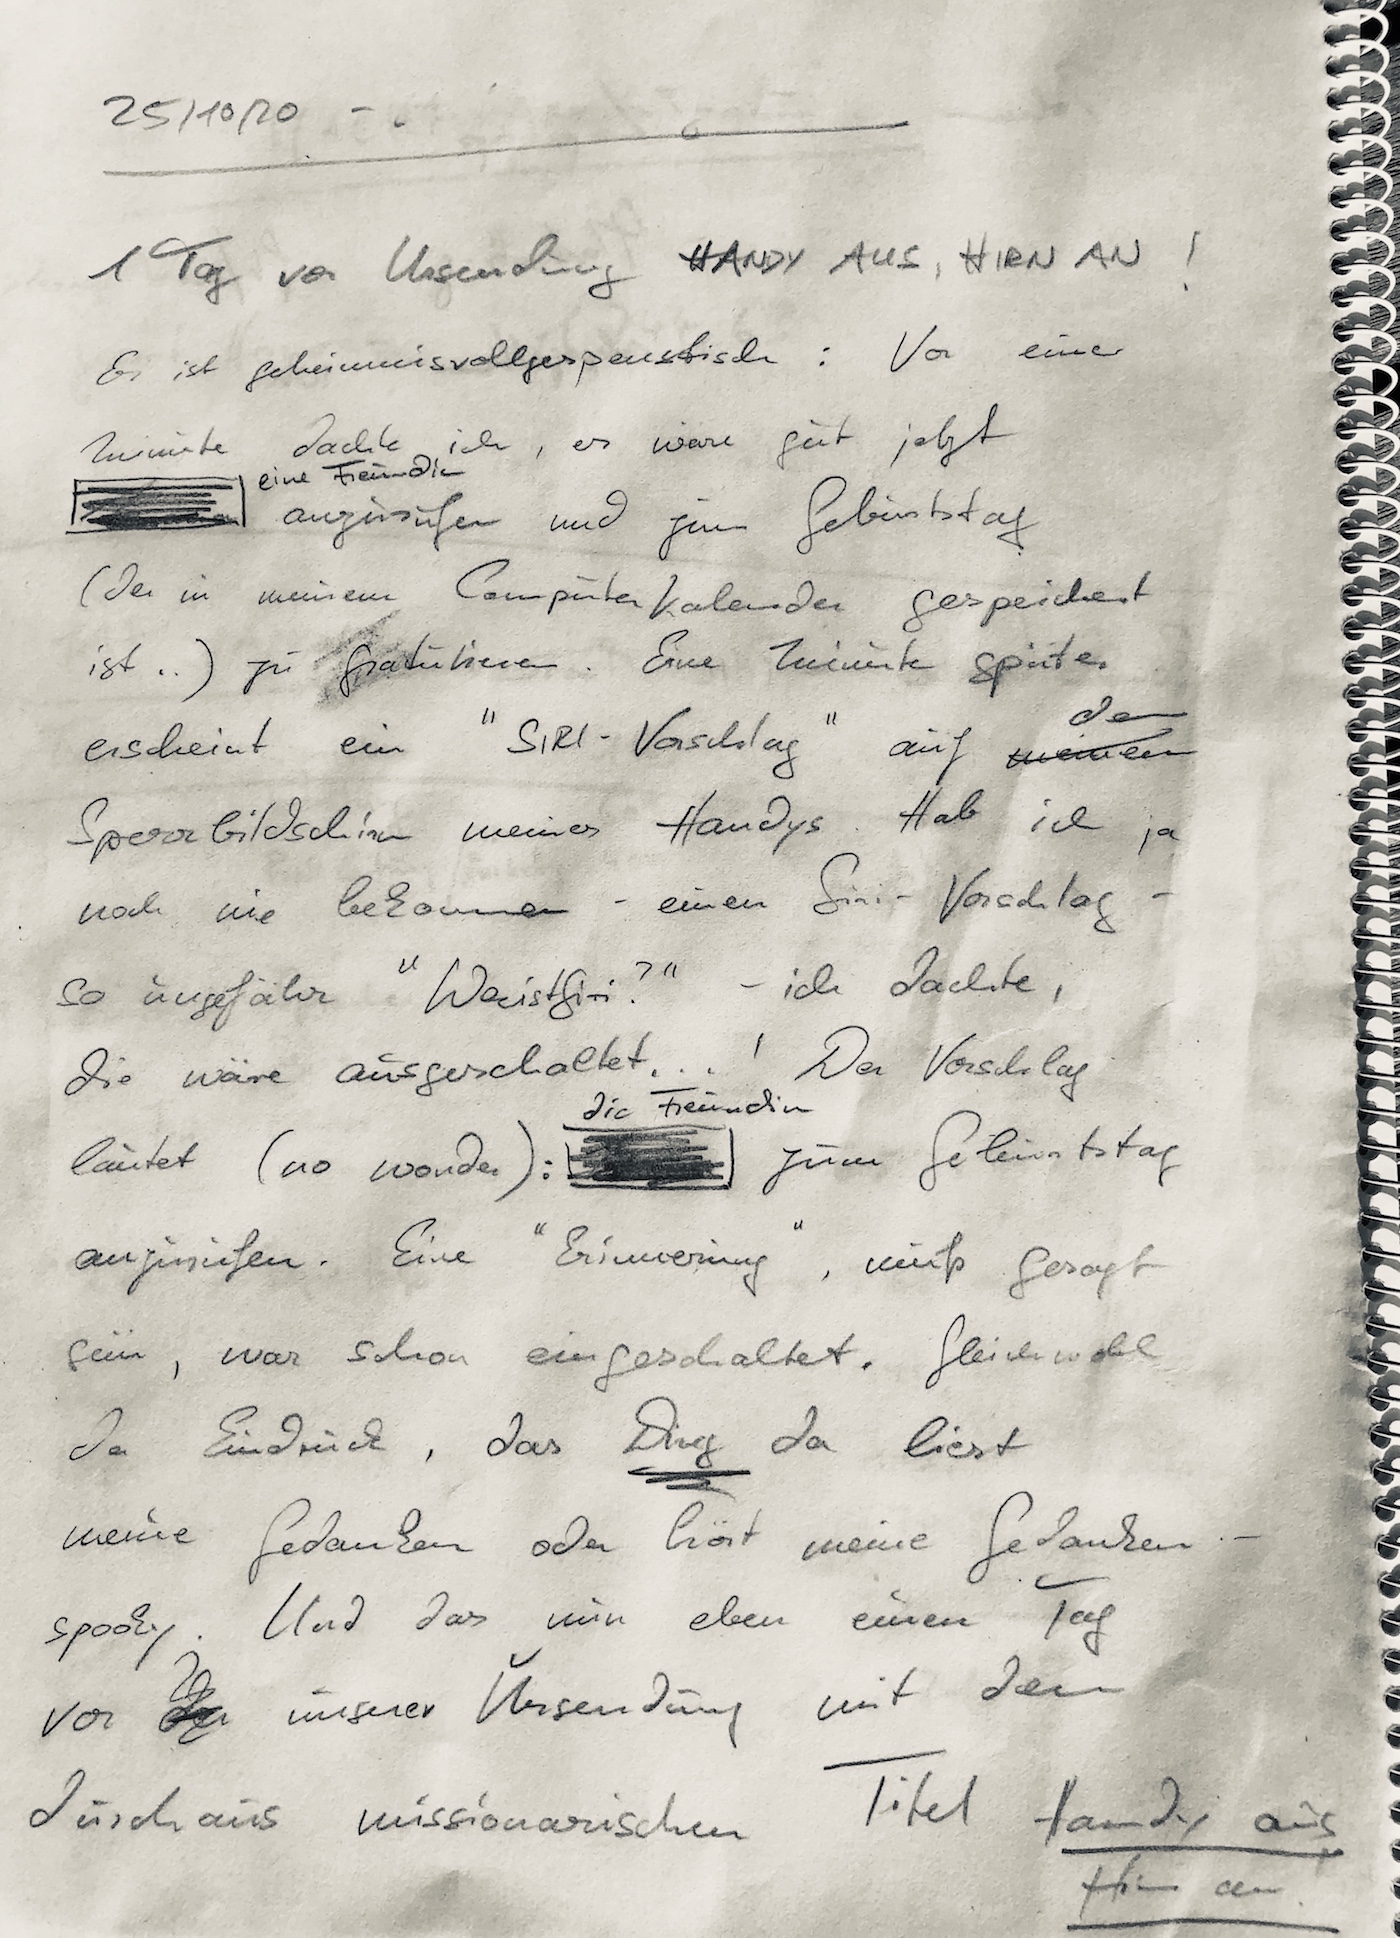 25/10/20 - .
1 Tag vor Ursendung HANDY AUS, HIRN AN !
Es ist geheimnisvollgespenstisch : Vor einer
Minute dachte ich, es wäre gut jetzt
eine Freundin
anzurufen und zum Geburtstag
(der in meinem Computerkalender gespeichert
ist ..) zu gratulieren. Eine Minute später
erscheint ein "SIRI-Vorschlag" auf meinem
dem
Sperrbildschirm meines Handys. Hab ich ja
noch nie bekommen - einen Siri-Vorschlag -
so ungefähr "WeristSiri?" - ich dachte,
die wäre ausgeschaltet...! Der Vorschlag
die Freundin
lautet (no wonder): zum Geburtstag
anzurufen. Eine "Erinnerung", muß gesagt
sein, war schon eingeschaltet. Gleichwohl
der Eindruck, das Ding da liest
meine Gedanken oder hört meine Gedanken -
spooky. Und das nun eben einen Tag
vor unserer Ursendung mit dem
durchaus missionarischen Titel Handy aus
Hirn an.